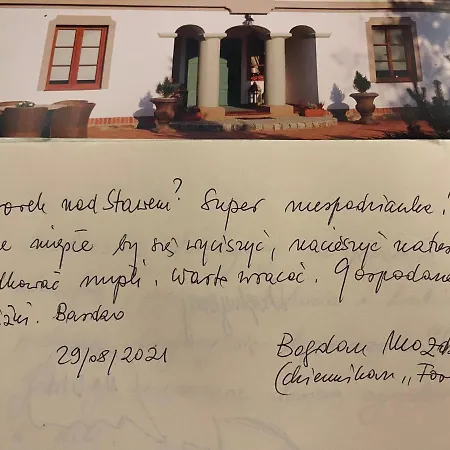 worek nad Stawem? Super niespodzianka!
e miejsce by się wyciszyć, nacieszyć natu
myśli. Warto wracać. Gospodarze
Bardzo
29/08/2021 Bogdan
(dziennikarz „